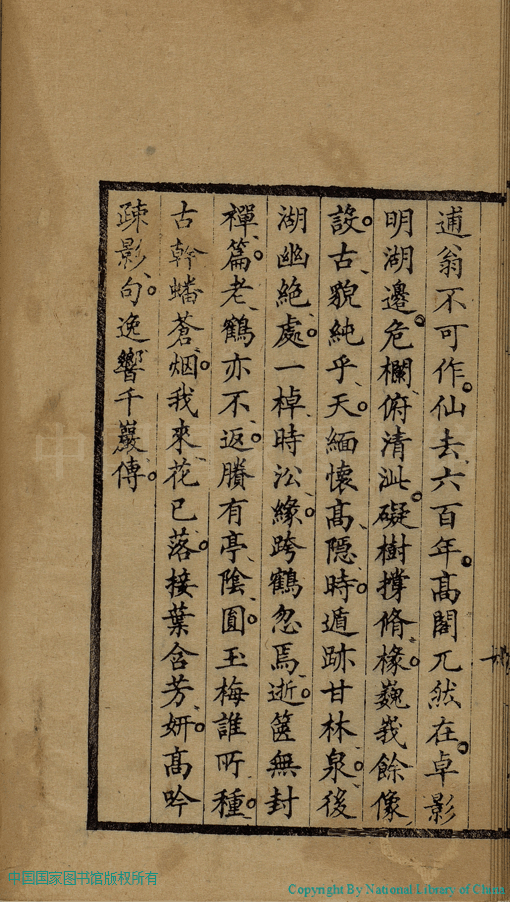 逋翁不可作仙去六百年高閣兀然在卓影
明湖邊危欄俯清泚礙樹撐脩椽巍峩餘像
設古貌純乎天緬懷高隱時遁跡甘林泉後
湖幽絶處一棹時沿緣跨鶴忽焉逝篋無封
禪篇老鶴亦不返賸有亭陰圓玉梅誰所種
古幹蟠蒼烟我來花已落接葉含芳妍高吟
疎影句逸響千巖傳
中国国家图书馆版权所有
Copyright By National Library of China